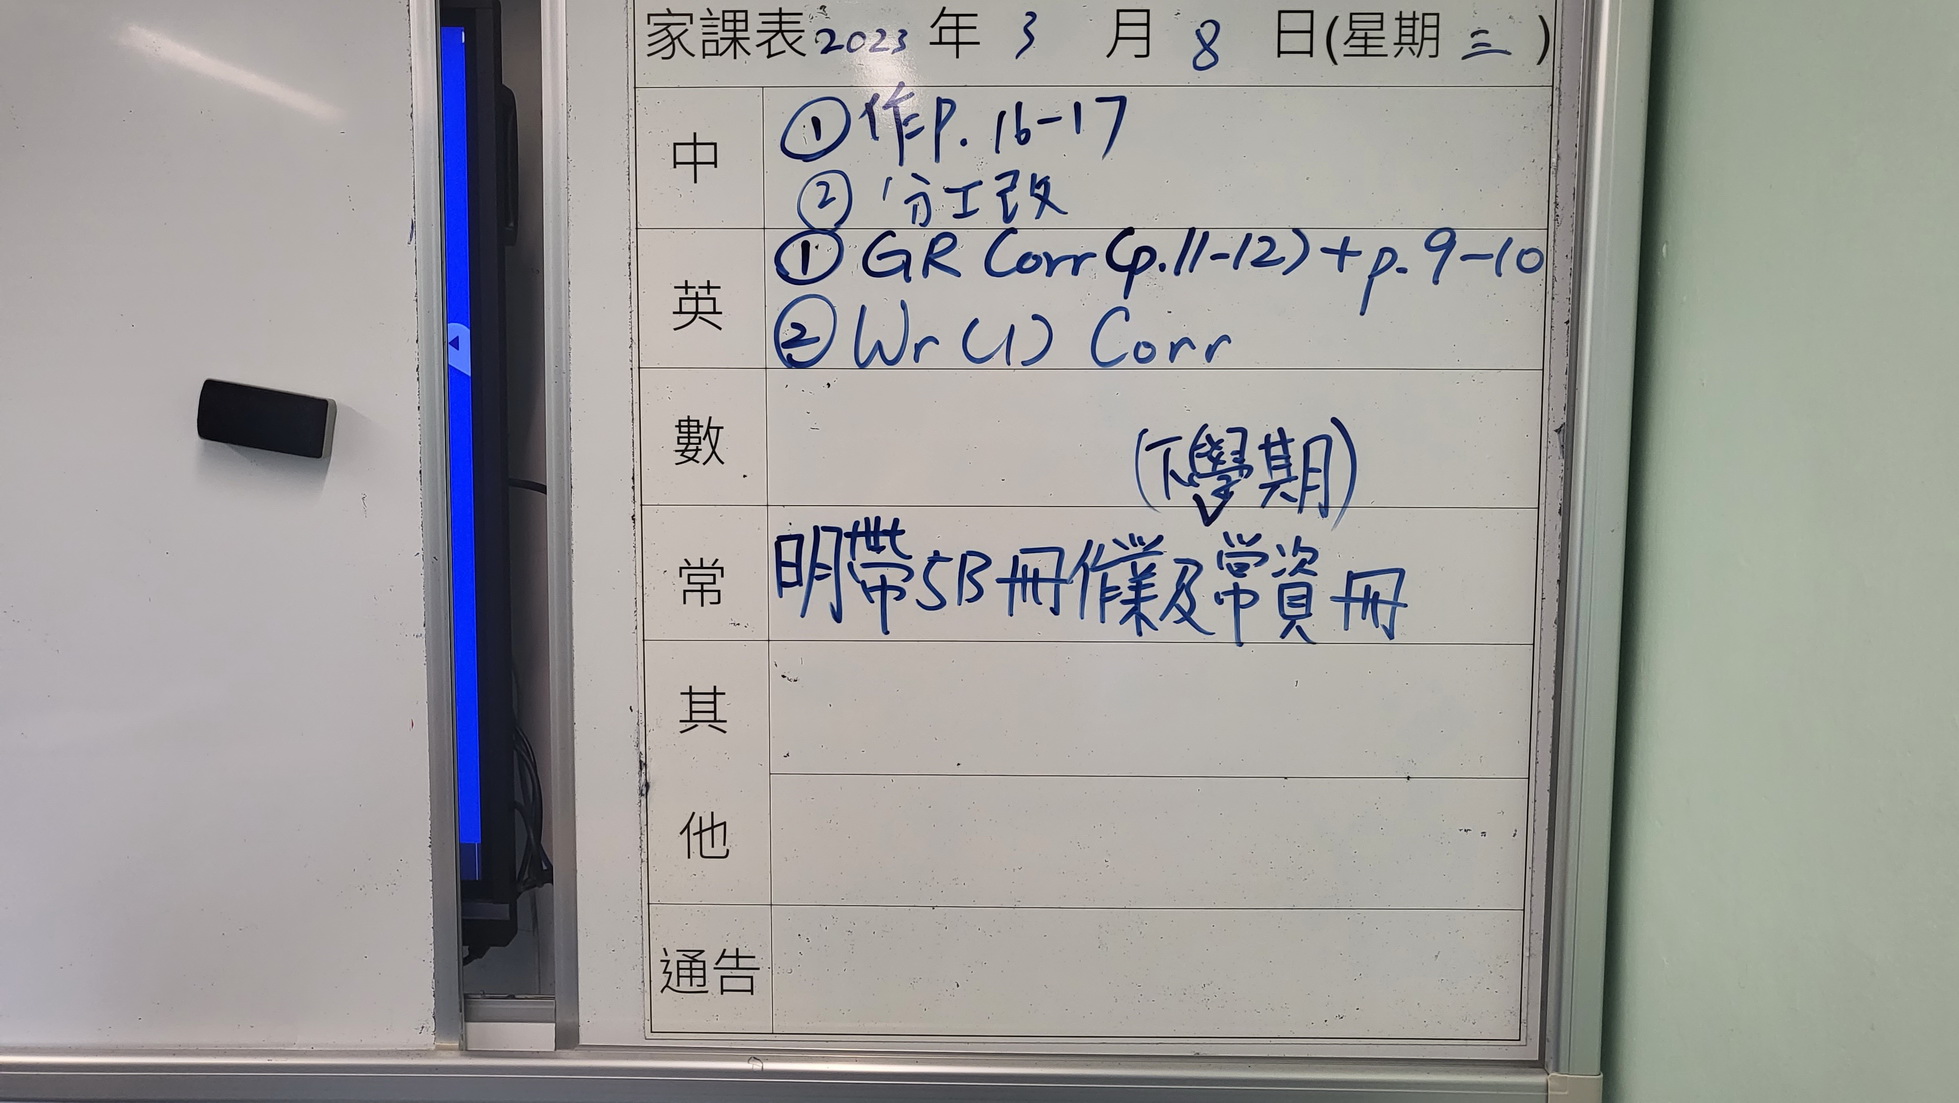 家課表 2023 年 3 月 8 日(星期 三 )
中
①作P. 16-17
② 分工改
英
① GR Corr (p.11-12) + p. 9-10
② Wr (1) Corr
數
(下學期)
常
明帶5B冊作業及常資冊
其
他
通告